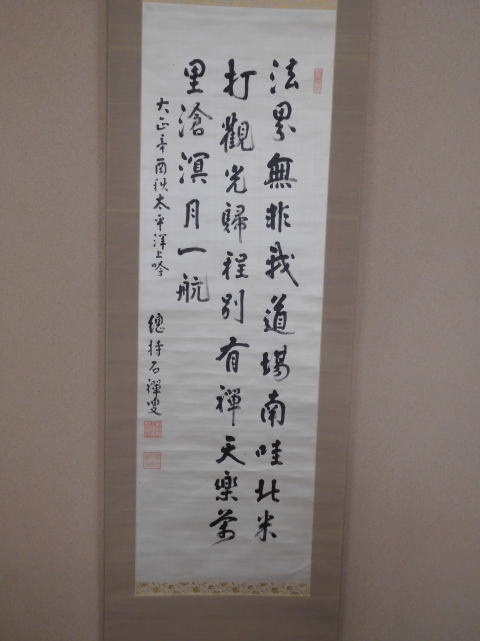 法界無非我道場南哇北米
打観光歸程別有禪天樂萬
里滄溟月一航
大正辛酉秋太平洋上吟
總持石禪叟